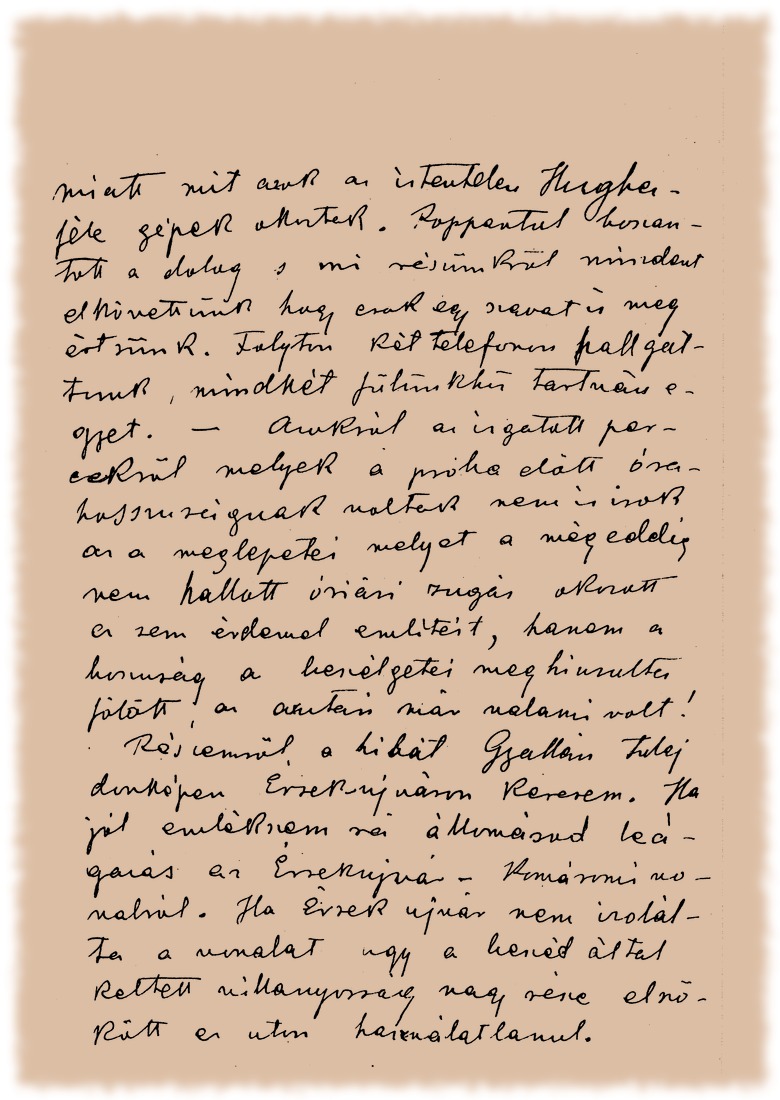 miatt mit azok az istentelen Hughes-
féle gépek okoztak. Roppantul boszan-
tott a dolog s mi részünkről mindent
elkövettünk hogy csak egy szavat is meg
értsünk. Folyton két telefonon hallgat-
tunk, mindkét fülünkhöz tartván e-
gyet. — Azokról az izgatott per-
cekről melyek a próba előtt óra-
hosszuságuak voltak nem is irok
az a meglepetés melyet a még eddig
nem hallott óriási zugás okozott
ez sem érdemel emlitést, hanem a
boszuság a beszélgetés meghiusultea
fölött, az azután már valami volt!
Részemről a hibát Gyallán tulaj
donképen Érsekujváron keresem. Ha
jól emlékszem rá állomásod leá-
gazás az Érsekujvár - Komáromi vo-
nalról. Ha Érsek ujvár nem izolál-
ta a vonalat ugy a beszéd által
keltett villanyosság nagy része elszö-
kött ez uton használatlanul.